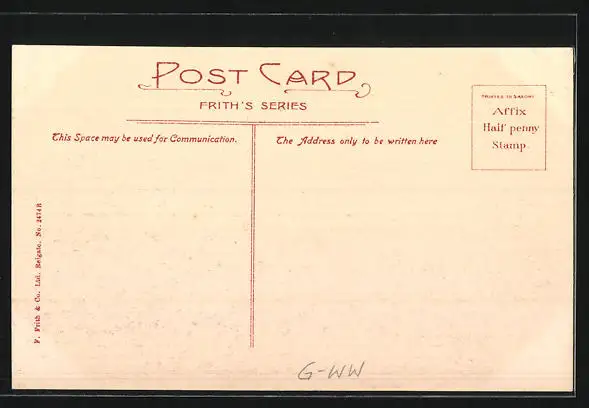 POST CARD
FRITH'S SERIES
This Space may be used for Communication.
The Address only to be written here
PRINTED IN SAXONY
Affix
Half penny
Stamp.
F. Frith & Co. Ltd. Reigate. No. 2474B
G-WW